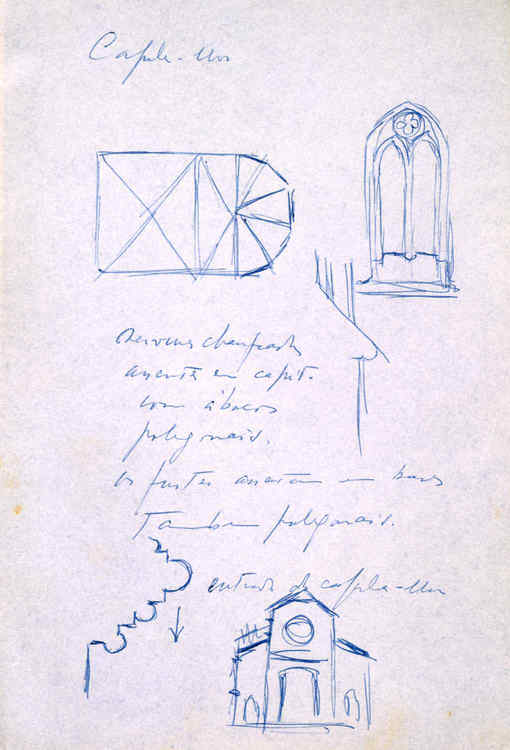 Capela-Mor
Nervuras chanfradas
assentes em capit.
com ábacos
poligonais.
Os fustes assentam em bases
Também poligonais.
entrada da capela-Mor